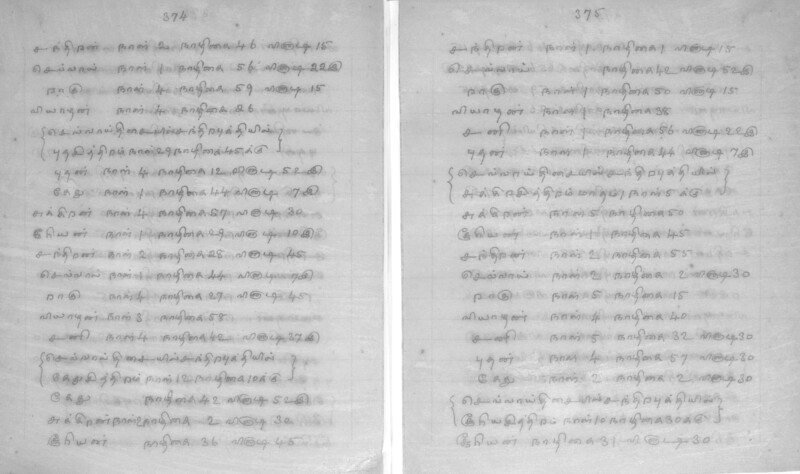 374
சந்திரன் நாள் 2 நாழிகை 46 விநாடி 15
செவ்வாய் நாள் 1 நாழிகை 56 விநாடி 22இ
ராகு நாள் 4 நாழிகை 59 விநாடி 15
வியாழன் நாள் 4 நாழிகை 26
செவ்வாய்திசையில் சந்திரபுத்தியில்
புதன் நாள் 4 நாழிகை 12 விநாடி 52இ
கேது நாள் 1 நாழிகை 44 விநாடி 7இ
சுக்கிரன் நாள் 4 நாழிகை 57 விநாடி 30
சூரியன் நாள் 1 நாழிகை 29
சந்திரன் நாள் 2 நாழிகை 28 விநாடி 45
செவ்வாய் நாள் 1 நாழிகை 44 விநாடி 7இ
ராகு நாள் 4 நாழிகை 27 விநாடி 45
வியாழன் நாள் 3 நாழிகை 58
சனி நாள் 4 நாழிகை 42 விநாடி 37இ
செவ்வாய்திசையில் சந்திரபுத்தியில்
நாள் 12 நாழிகை
கேது நாழிகை 42 விநாடி 52இ
சுக்கிரன் நாள் 2 நாழிகை 2 விநாடி 30
சூரியன் நாழிகை 36 விநாடி 45
375
சந்திரன் நாள் 1 நாழிகை 1 விநாடி 15
செவ்வாய் நாழிகை 42 விநாடி 52இ
ராகு நாள் 1 நாழிகை 50 விநாடி 15
வியாழன் நாள் 1 நாழிகை 38
சனி நாள் 1 நாழிகை 56 விநாடி 22இ
புதன் நாள் 1 நாழிகை 44 விநாடி 7இ
செவ்வாய்திசையில் சந்திரபுத்தியில்
சுக்கிரன் நாள் 5 நாழிகை 50
சூரியன் நாள் 1 நாழிகை 45
சந்திரன் நாள் 2 நாழிகை 55
செவ்வாய் நாள் 2 நாழிகை 2 விநாடி 30
ராகு நாள் 5 நாழிகை 15
வியாழன் நாள் 4 நாழிகை 40
சனி நாள் 5 நாழிகை 32 விநாடி 30
புதன் நாள் 4 நாழிகை 57 விநாடி 30
கேது நாள் 2 நாழிகை 2 விநாடி 30
செவ்வாய்திசையில் சந்திரபுத்தியில்
நாள் 10 நாழிகை
சூரியன் நாழிகை 31 விநாடி 30